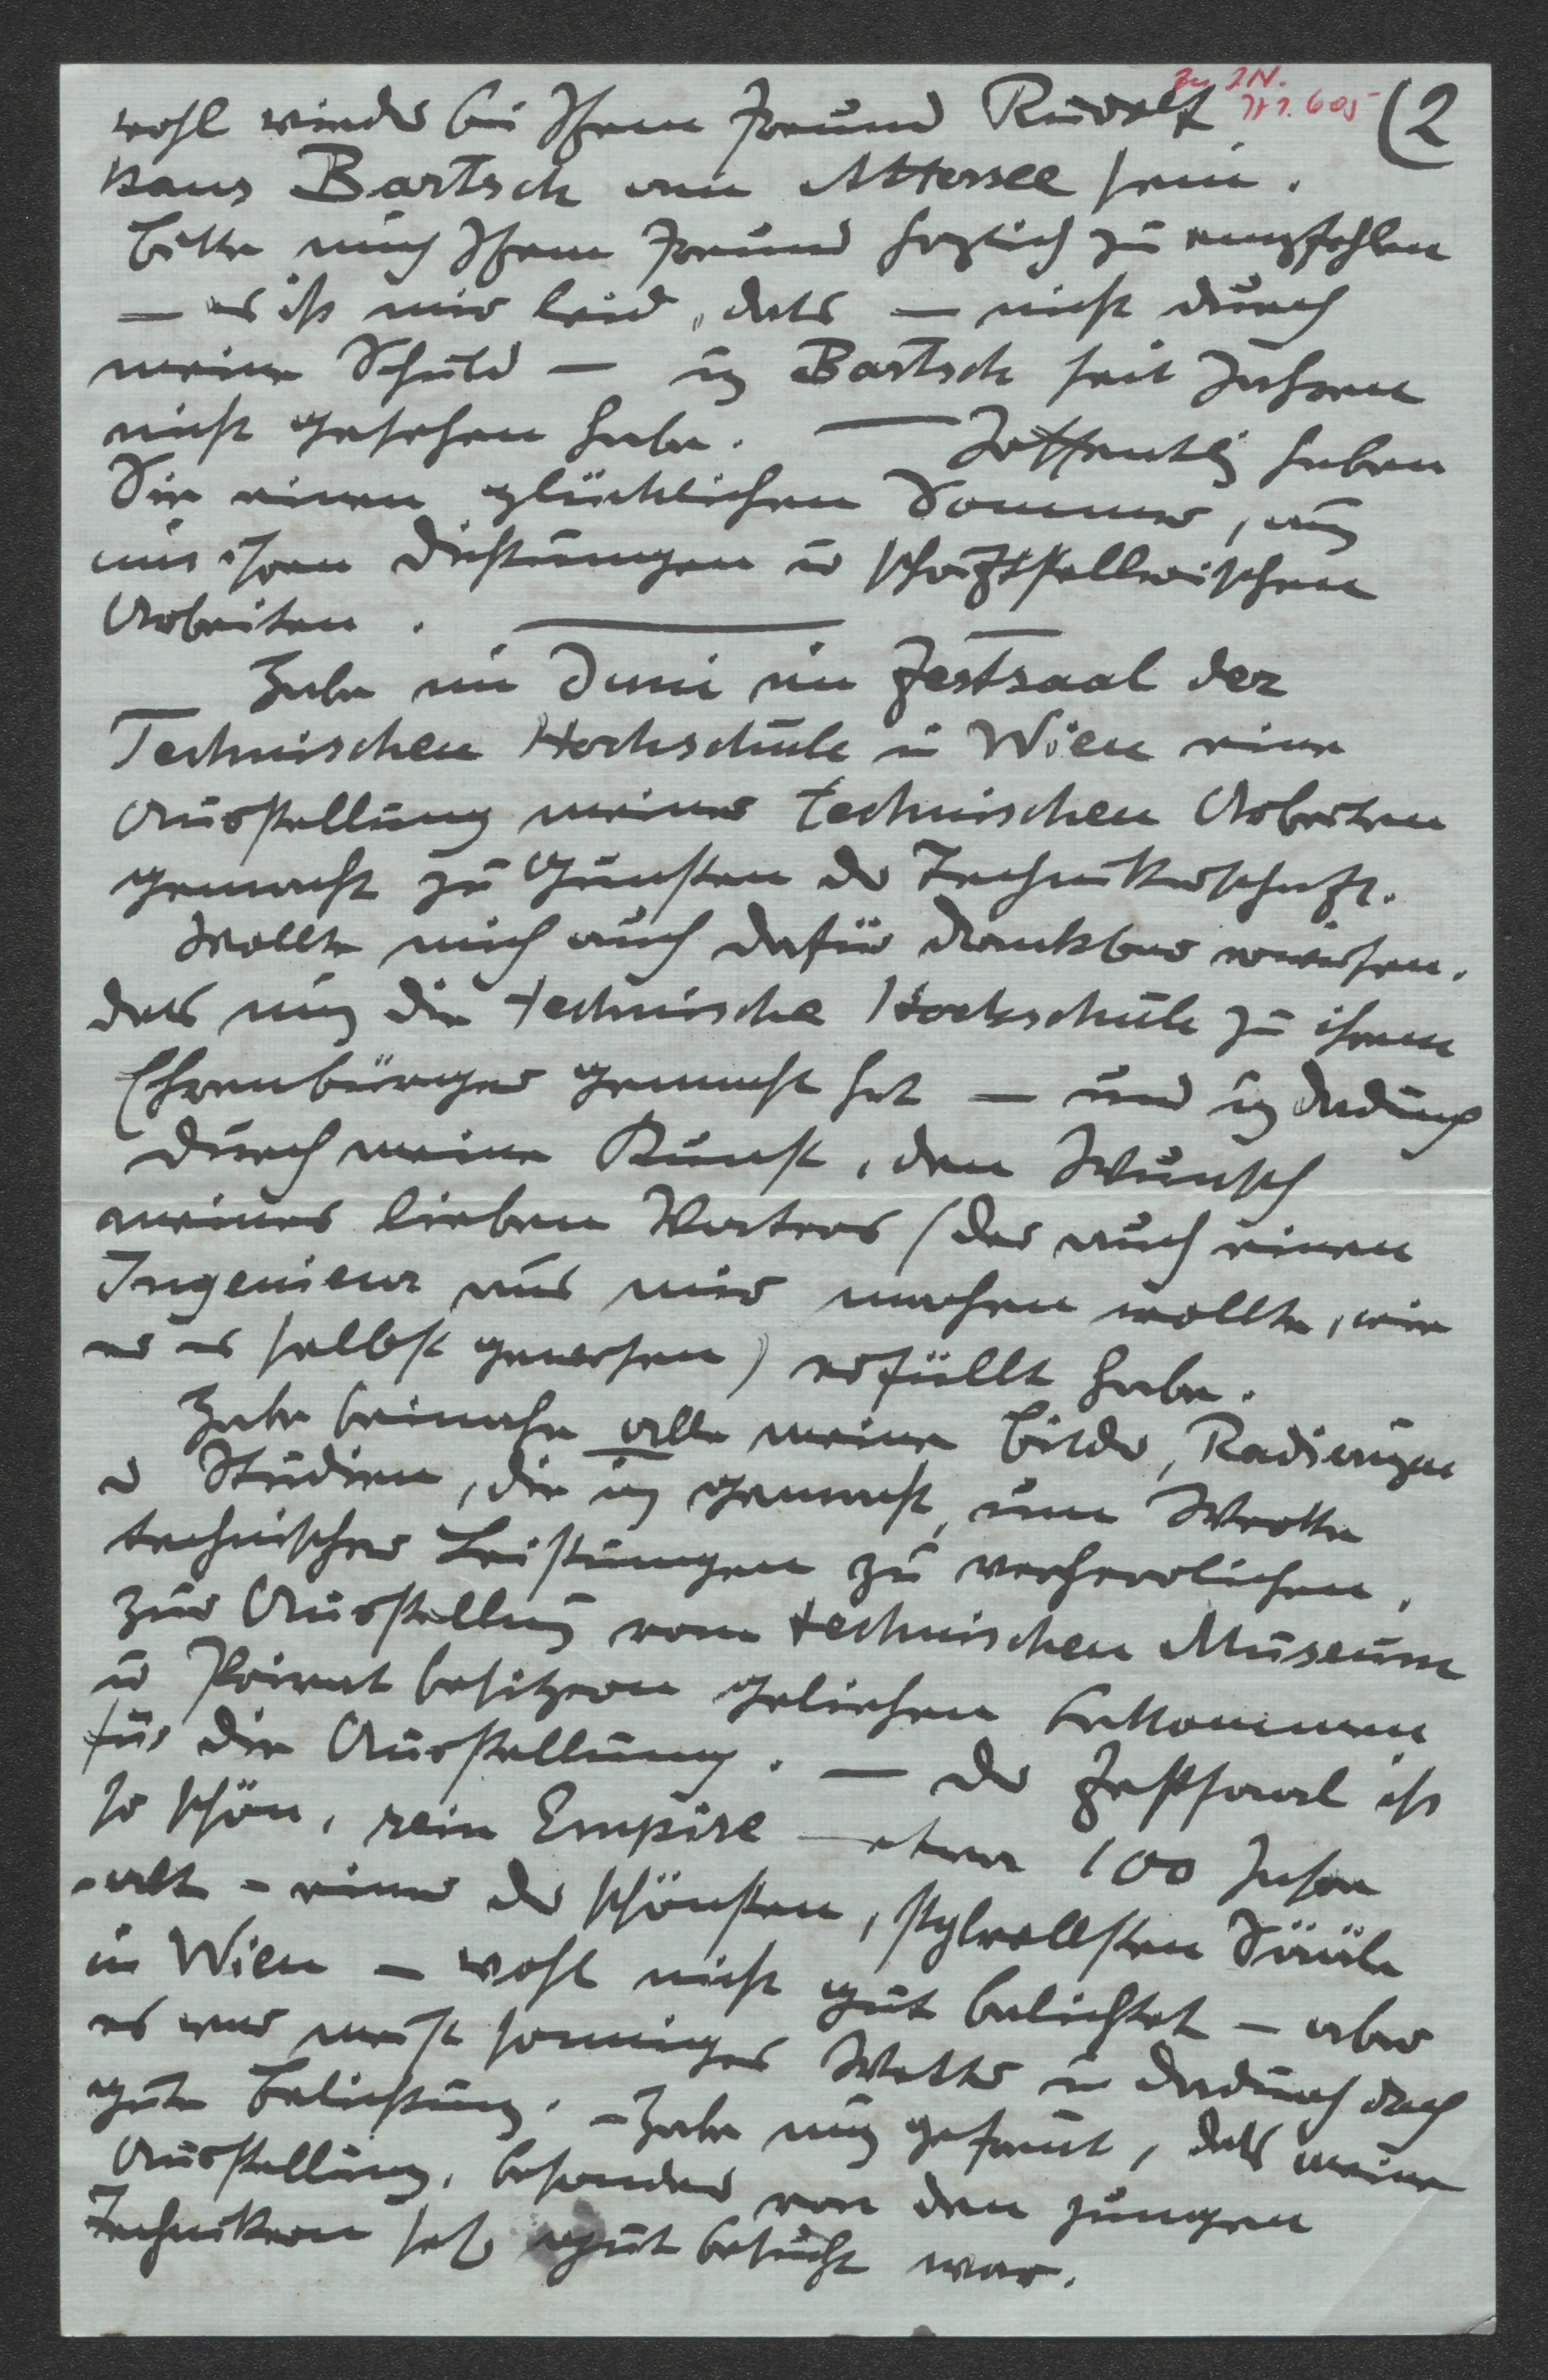 Zu IN.
(2
wohl wieder bei Ihrem Freund Rudolf
Hans Bartsch am Attersee sein.
Bitte mich Ihrem Freund herzlich zu empfehlen
— es ist mir leid, dass — nicht durch
meine Schuld — ich Bartsch seit Jahren
nicht gesehen habe. — Hoffentlich haben
Sie einen glücklichen Sommer, auch
mit Ihren Dichtungen u schriftstellerischen
Arbeiten. —
Habe im Juni im Festsaal der
Technischen Hochschule in Wien eine
Ausstellung meiner technischen Arbeiten
gemacht zu Gunsten der Technikerschaft.
Wollte mich auch dafür dankbar erweisen,
dass mich die technische Hochschule zu ihrem
Ehrenbürger gemacht hat — und ich dadurch
durch meine Kunst, den Wunsch
meines lieben Vaters (der auch einen
Ingenieur aus mir machen wollte, wie
er es selbst gewesen) erfüllt habe.
Habe beinahe alle meine Bilder, Radierungen
u Studien, die ich gemacht, um Werke
technischer Leistungen zu verherrlichen,
zur Ausstellung vom technischen Museum
u Privatbesitzern geliehen bekommen
für die Ausstellung. — Der Festsaal ist
so schön, rein Empire — etwa 100 Jahre
alt – einer der schönsten, stylvollsten Sääle
in Wien – wohl nicht gut belichtet – aber
es war meist sonniges Wetter u dadurch doch
gute Belichtung. – Habe mich gefreut, dass meine
Ausstellung, besonders von den jungen
Technikern sehr gut besucht war.